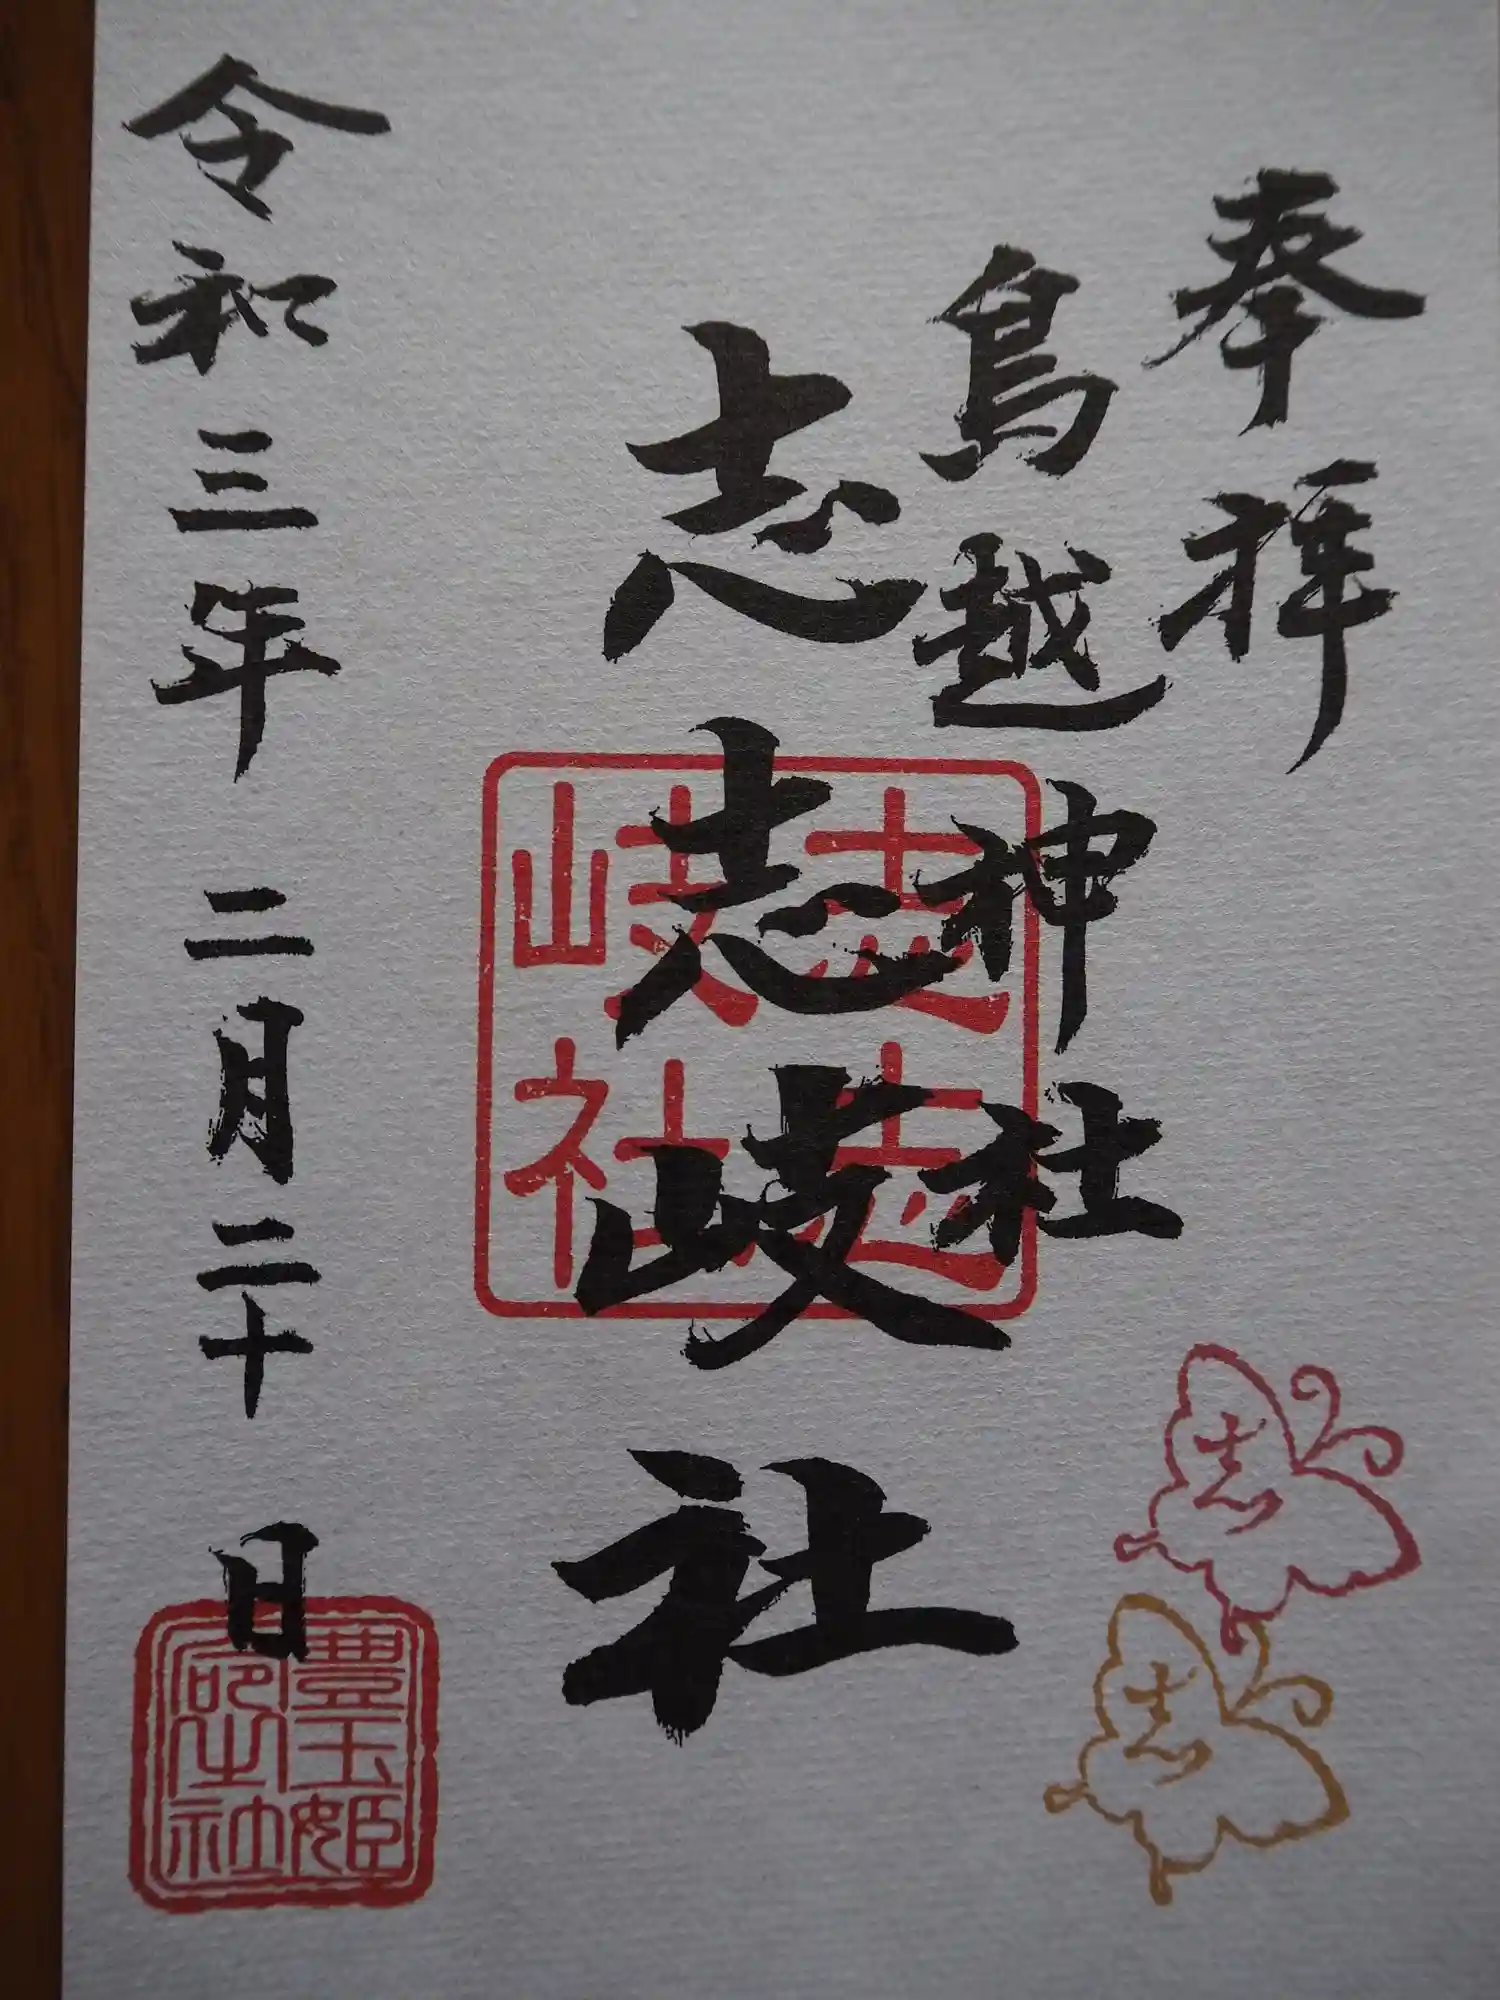 奉拝
鳥越神社
志志岐社
志志
岐社
令和三年 二月二十 日
豊玉姫
神社
志
志